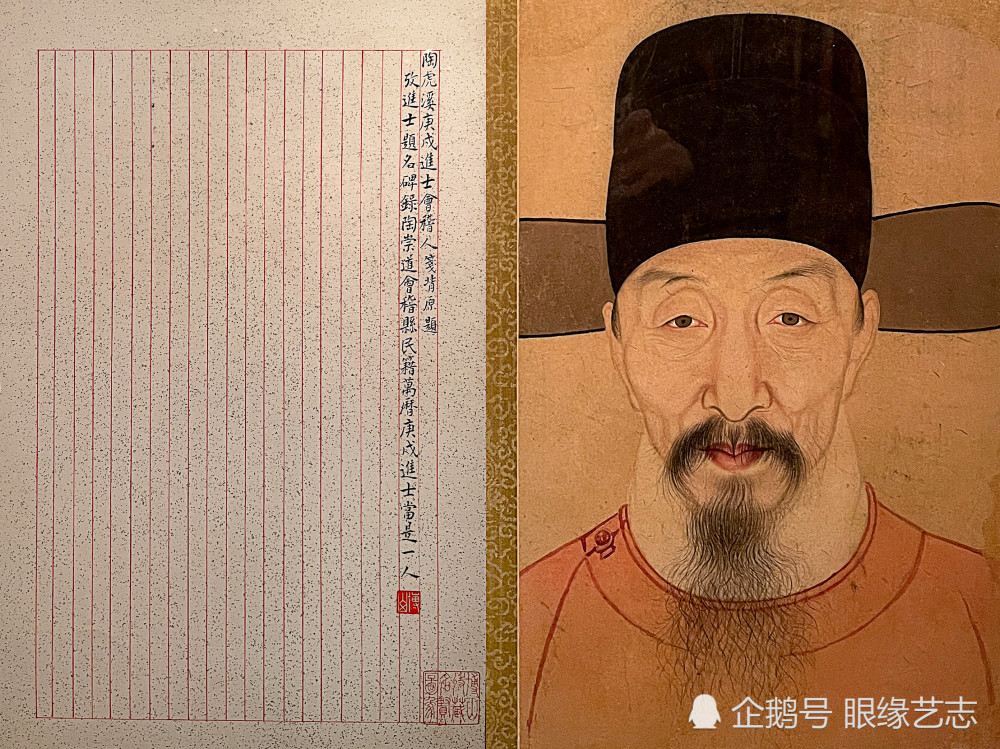 陶虎溪庚戌進士會稽人箋背原題
攷進士題名碑錄陶崇道會稽縣民籍萬曆庚戌進士當是一人
企鹅号 眼缘艺志